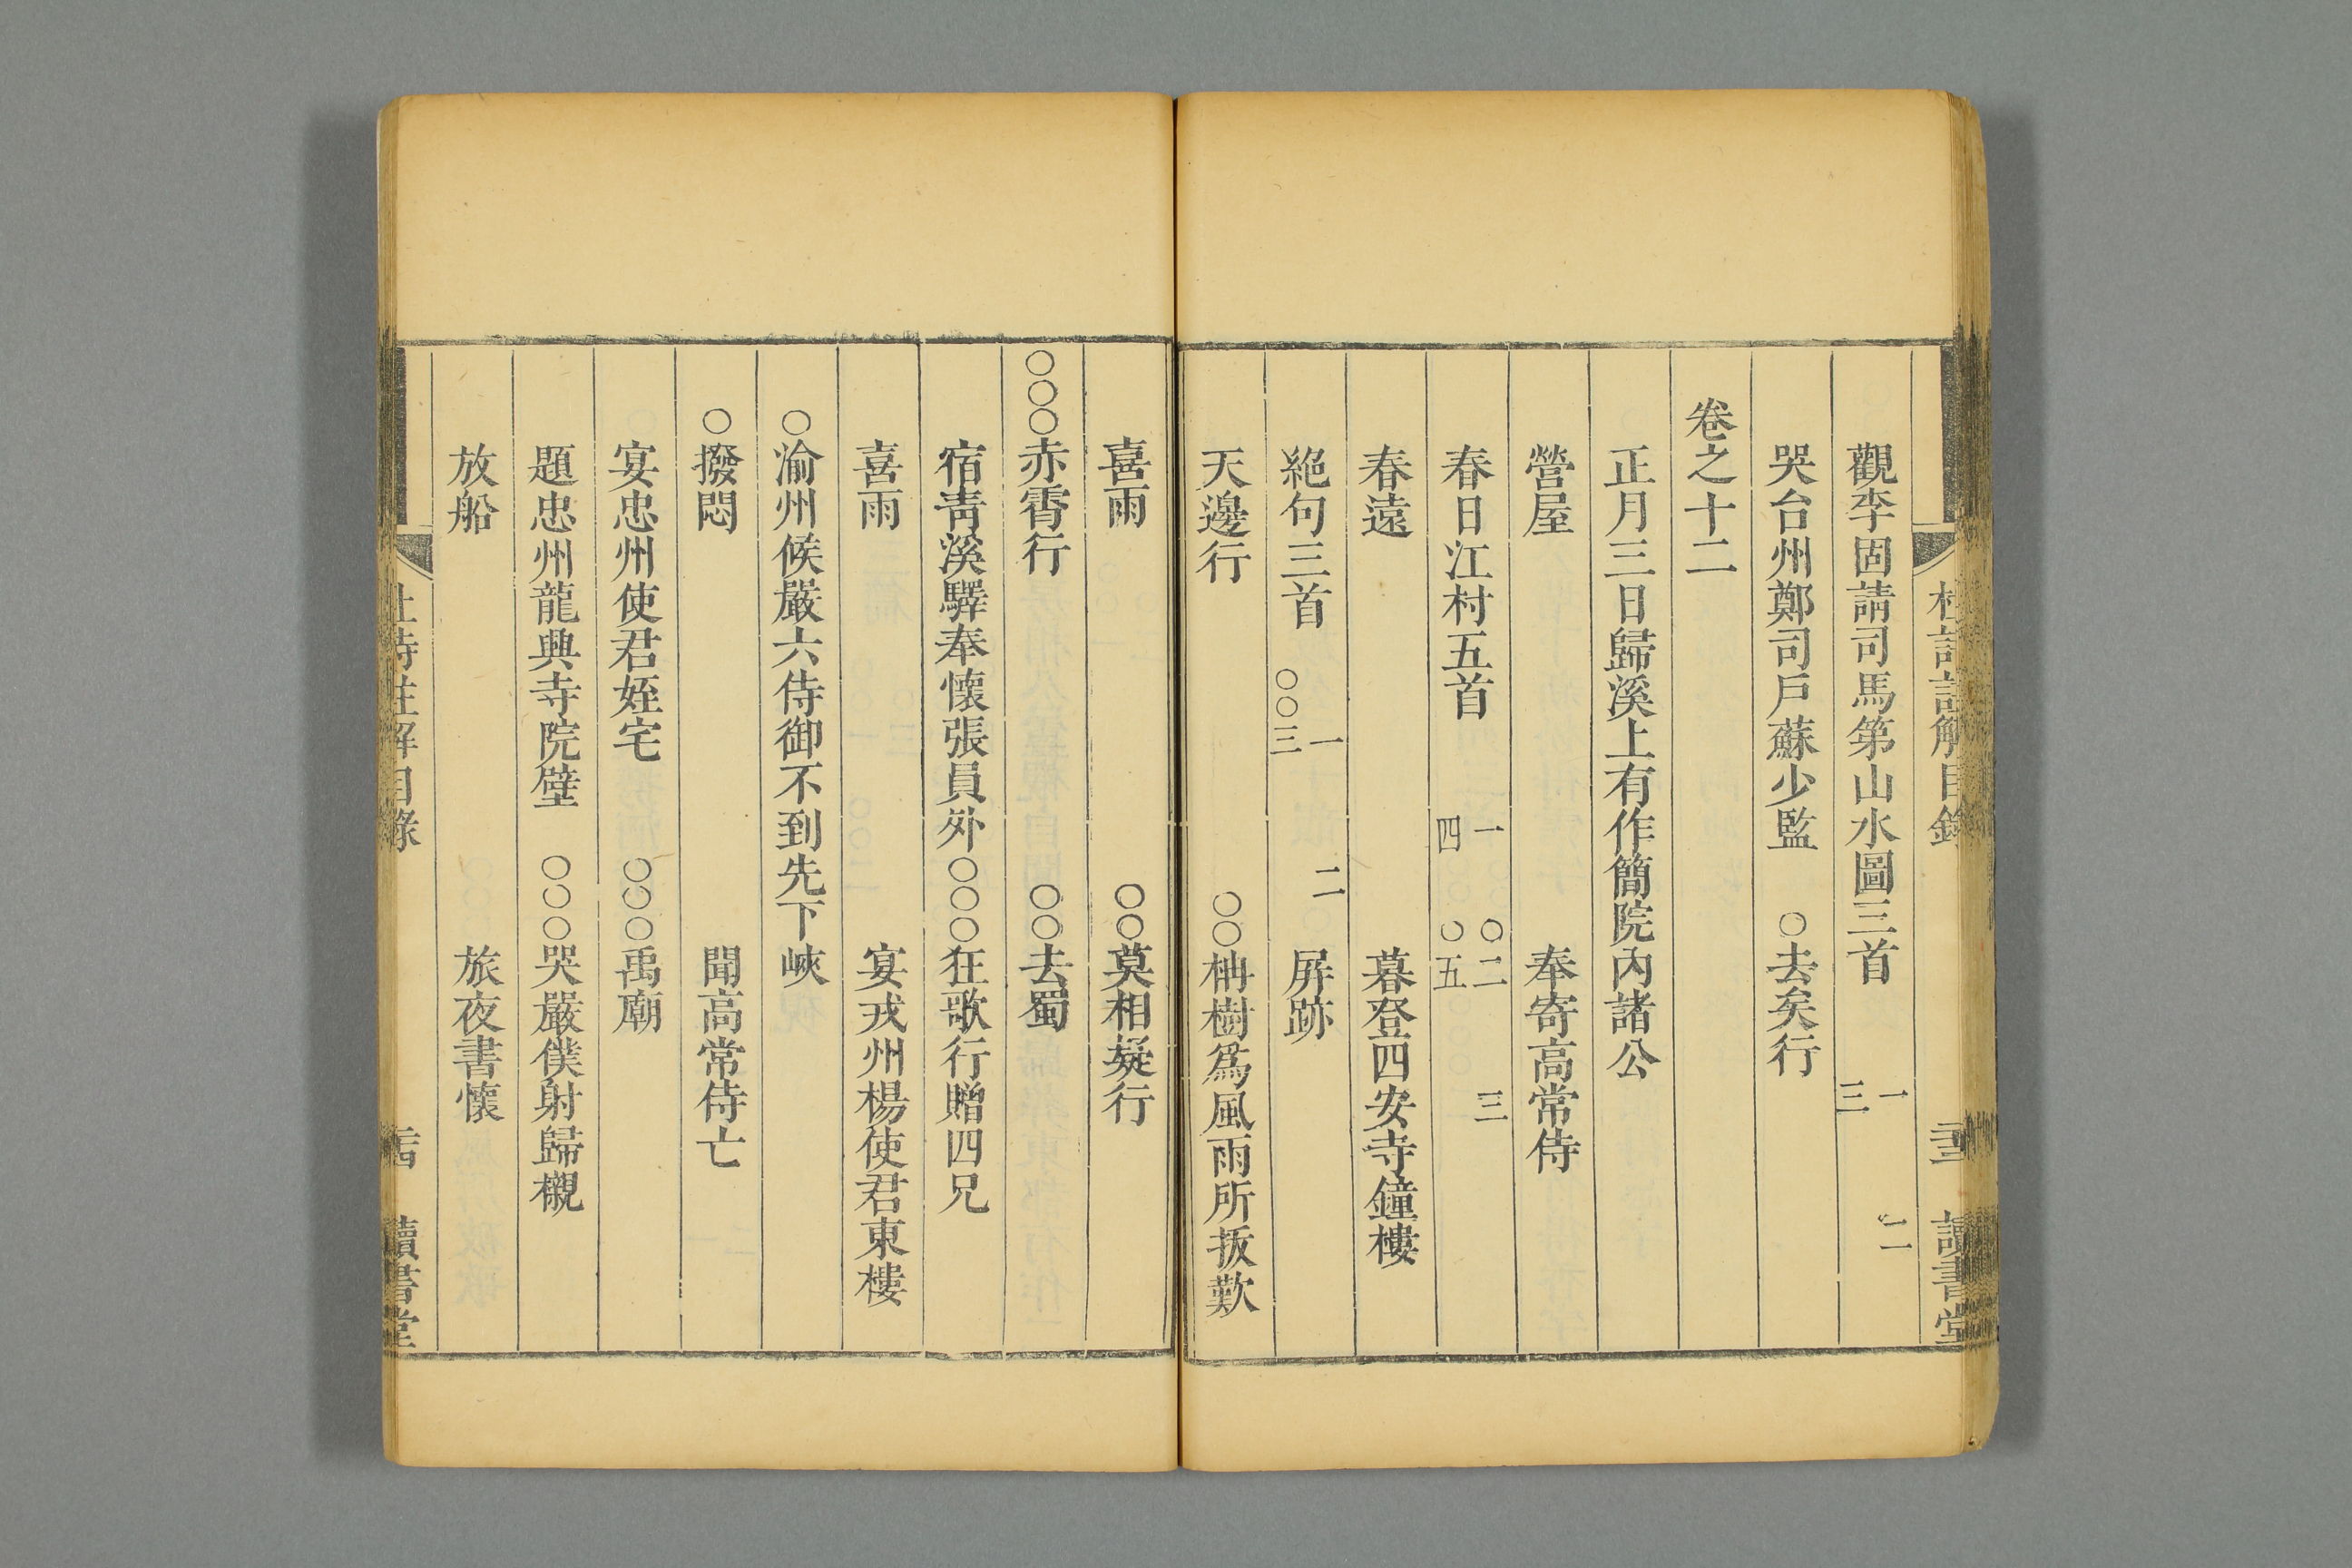 杜詩註解目錄 讀書堂
觀李固請司馬第山水圖三首 一 二 三
哭台州鄭司戶蘇少監 ○去矣行
卷之十二
正月三日歸溪上有作簡院內諸公
營屋 奉寄高常侍
春日江村五首 一 ○二 三 四 ○五
春遠 暮登四安寺鐘樓
絕句三首 一 二 ○○三 屏跡
天邊行 ○○柟樹爲風雨所拔歎
喜雨 ○○莫相疑行
○○○赤霄行 ○○去蜀
宿靑溪驛奉懷張員外 ○○○狂歌行贈四兄
喜雨 宴戎州楊使君東樓
○渝州候嚴六侍御不到先下峽
○撥悶 聞高常侍亡
宴忠州使君姪宅 ○○○禹廟
題忠州龍興寺院壁 ○○○哭嚴僕射歸櫬
放船 旅夜書懷
杜詩註解目錄 讀書堂